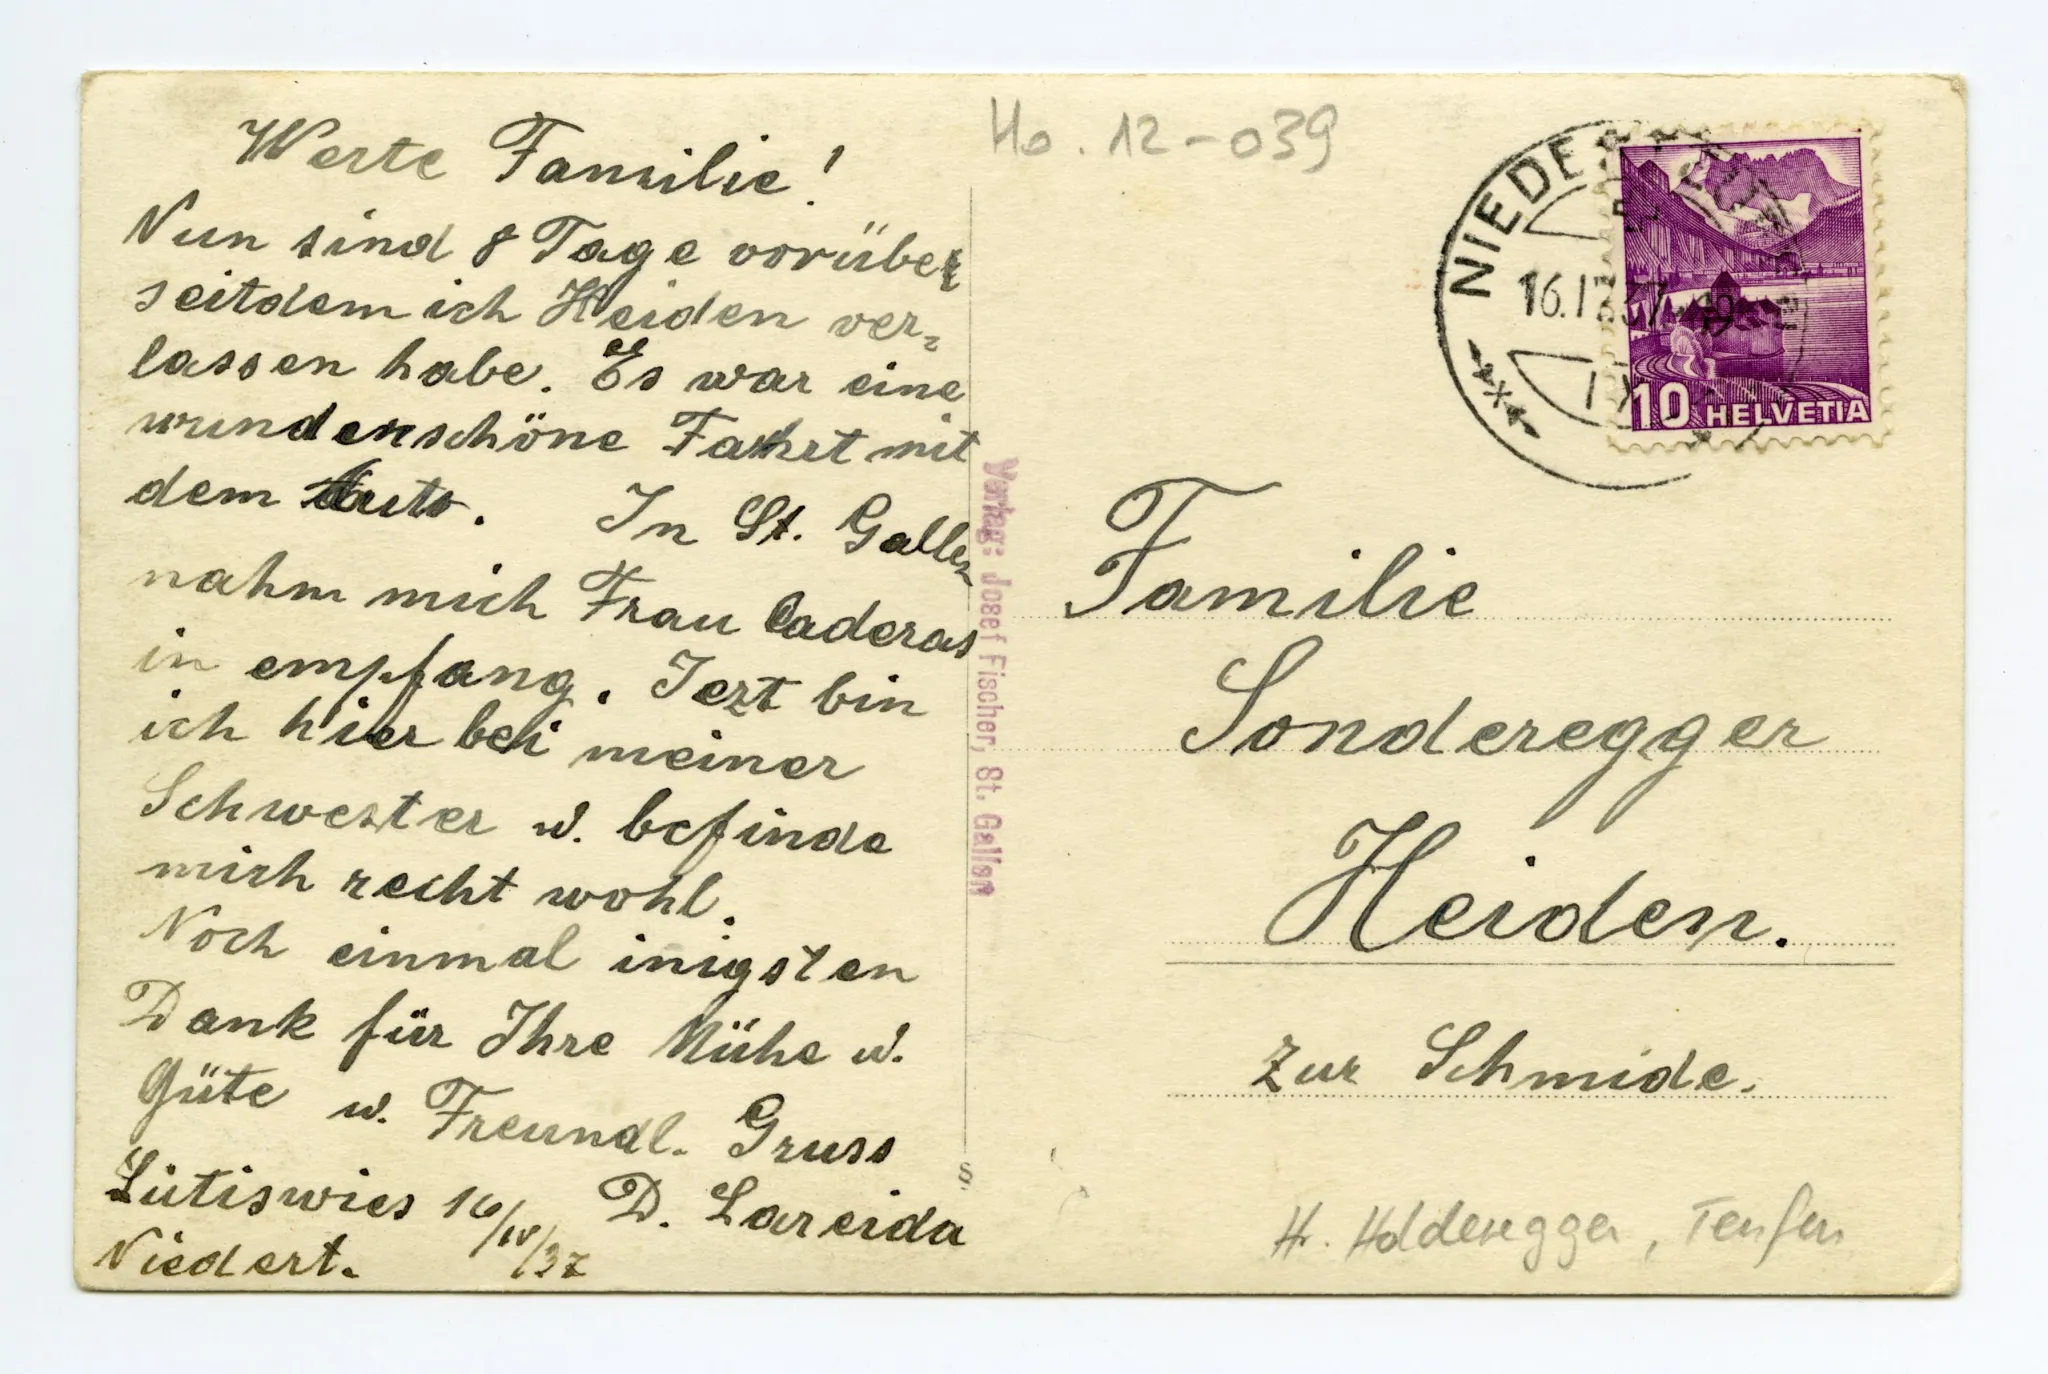 Werte Familie!
Nun sind 8 Tage vorüber
seitdem ich Heiden ver-
lassen habe. Es war eine
wunderschöne Fahrt mit
dem Auto. In St. Gallen
nahm mich Frau Caderas
in empfang. Jezt bin
ich hier bei meiner
Schwester u. befinde
mich recht wohl.
Noch einmal inigsten
Dank für Ihre Mühe u.
Güte u. Freundl. Gruss
Lütiswies 16/IV/37 D. Lareida
Niedert.
Ho. 12-039
NIEDE
16.IV.37
10 HELVETIA
Verlag: Josef Fischer, St. Gallen
Familie
Sonderegger
Heiden.
Zur Schmide.
H. Holderegger, Teufen